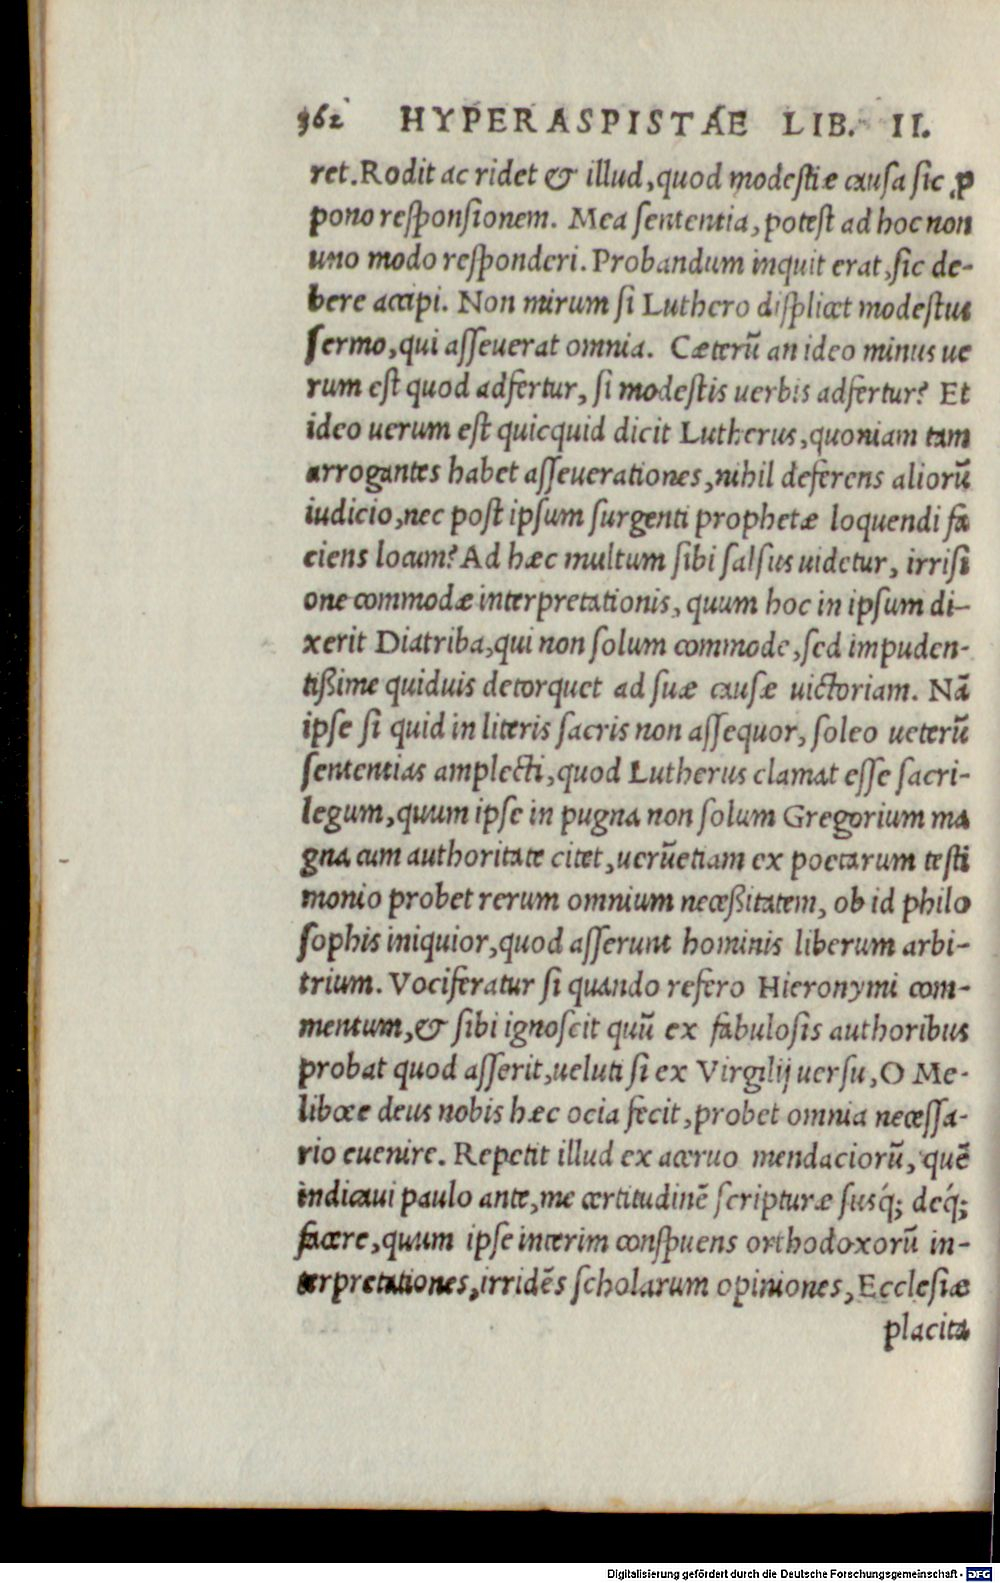 362 HYPERASPISTAE LIB. II.
ret. Rodit ac ridet & illud, quod modestiæ causa sic ꝓ
pono responsionem. Mea sententia, potest ad hoc non
uno modo responderi. Probandum inquit erat, sic de-
bere accipi. Non mirum si Luthero displicet modestus
sermo, qui asseuerat omnia. Cæterũ an ideo minus ue
rum est quod adfertur, si modestis uerbis adfertur? Et
ideo uerum est quicquid dicit Lutherus, quoniam tam
arrogantes habet asseuerationes, nihil deferens aliorũ
iudicio, nec post ipsum surgenti prophetæ loquendi fa
ciens locum? Ad hæc multum sibi salsus uidetur, irrisi
one commodæ interpretationis, quum hoc in ipsum di-
xerit Diatriba, qui non solum commode, sed impuden-
tißime quiduis detorquet ad suæ causæ uictoriam. Nã
ipse si quid in literis sacris non assequor, soleo ueterũ
sententias amplecti, quod Lutherus clamat esse sacri-
legum, quum ipse in pugna non solum Gregorium ma
gna cum authoritate citet, uerũetiam ex poetarum testi
monio probet rerum omnium neceßitatem, ob id philo
sophis iniquior, quod asserunt hominis liberum arbi-
trium. Vociferatur si quando refero Hieronymi com-
mentum, & sibi ignoscit quũ ex fabulosis authoribus
probat quod asserit, ueluti si ex Virgilij uersu, O Me-
libœe deus nobis hæc ocia fecit, probet omnia necessa-
rio euenire. Repetit illud ex aceruo mendaciorũ, quẽ
indicaui paulo ante, me certitudinẽ scripturæ susq́; deq́;
facere, quum ipse interim conspuens orthodoxorũ in-
terpretationes, irridẽs scholarum opiniones, Ecclesiæ
placita
Digitalisierung gefördert durch die Deutsche Forschungsgemeinschaft - DFG